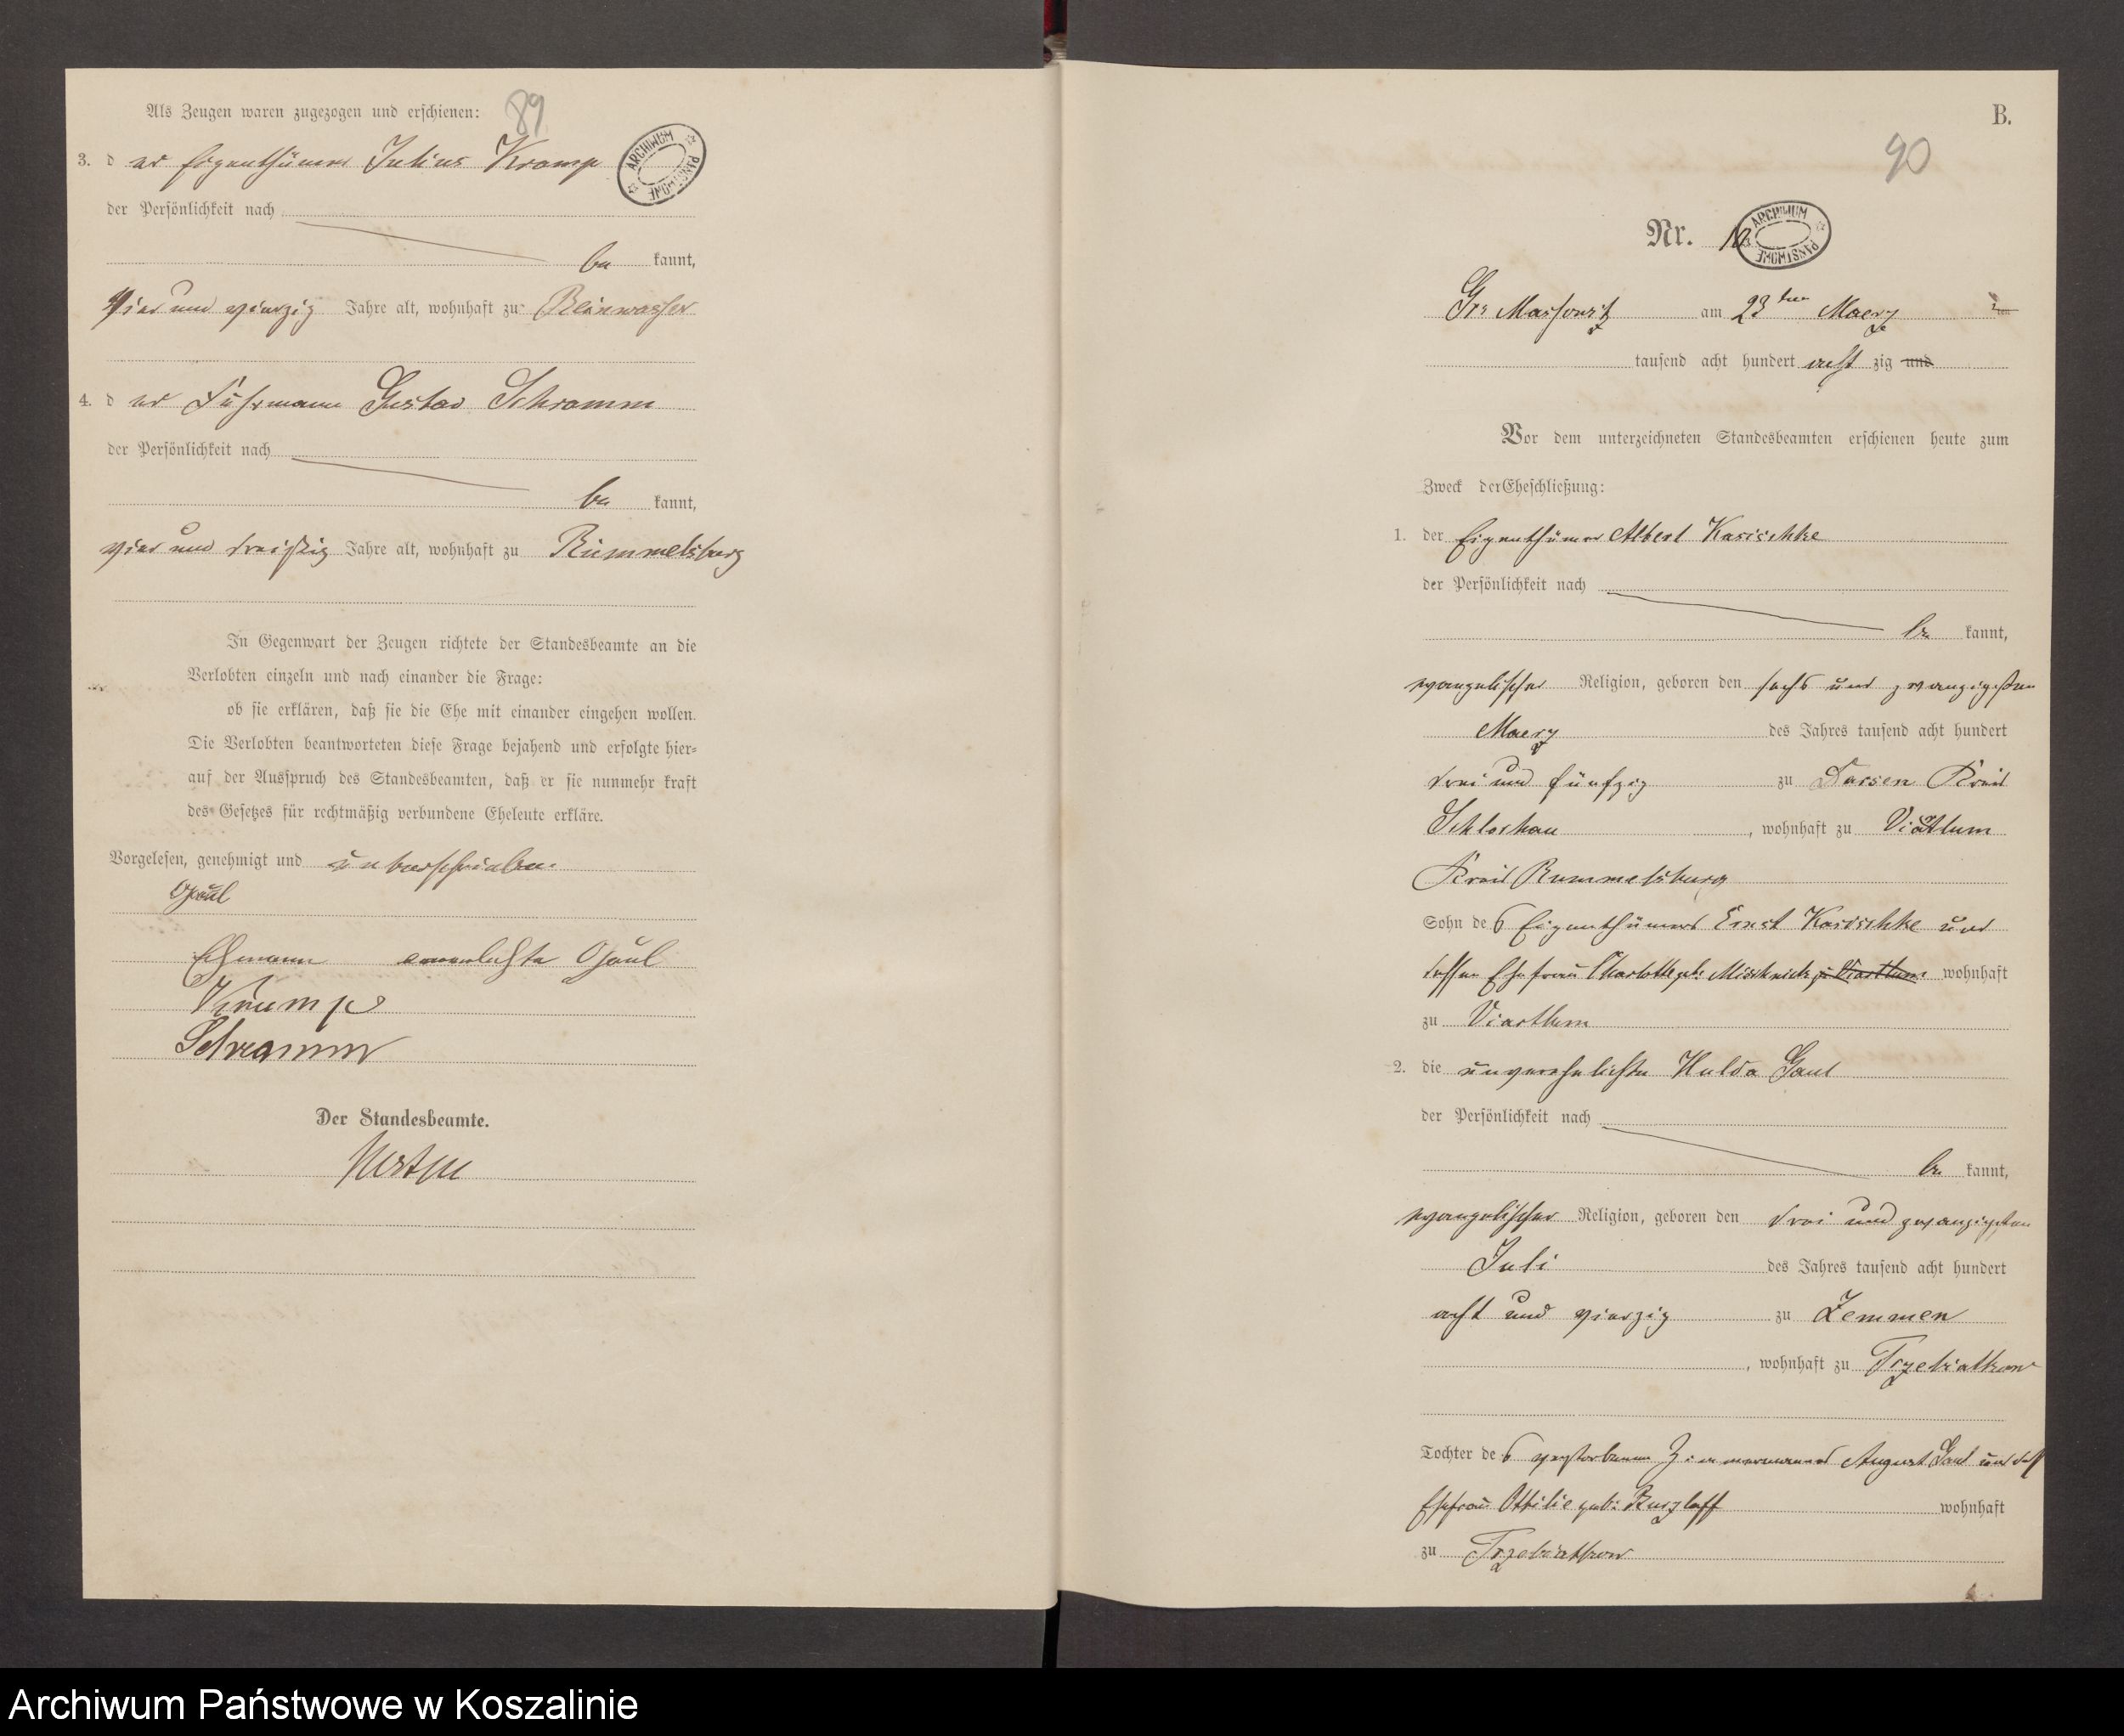 Als Zeugen waren zugezogen und erschienen:
89
3. d er Eigenthümer Julius Kramp
ARCHIWUM PAŃSTWOWE
der Persönlichkeit nach
be kannt,
vier und vierzig Jahre alt, wohnhaft zu Reinwasser
4. d er Fuhrmann Gustav Schramm
der Persönlichkeit nach
be kannt,
vier und dreißig Jahre alt, wohnhaft zu Rummelsburg
In Gegenwart der Zeugen richtete der Standesbeamte an die
Verlobten einzeln und nach einander die Frage:
ob sie erklären, daß sie die Ehe mit einander eingehen wollen.
Die Verlobten beantworteten diese Frage bejahend und erfolgte hier=
auf der Ausspruch des Standesbeamten, daß er sie nunmehr kraft
des Gesetzes für rechtmäßig verbundene Eheleute erkläre.
Vorgelesen, genehmigt und unterschrieben.
Ehmann
Krump
Schramm
Der Standesbeamte.
B.
90
Nr. 10
ARCHIWUM PAŃSTWOWE
Gr. Massowitz am 23ten Maerz
tausend acht hundert acht zig und
Vor dem unterzeichneten Standesbeamten erschienen heute zum
Zweck der Eheschließung:
1. der Eigenthümer Albert Kasischke
der Persönlichkeit nach
be kannt,
evangelischer Religion, geboren den sechs und zwanzigsten
Maerz des Jahres tausend acht hundert
drei und fünfzig zu Darsen Kreis
Schlochau, wohnhaft zu Viartlum
Kreis Rummelsburg
Sohn des Eigenthümers Ernst Kasischke und
dessen Ehefrau Charlotte geb: Mischnick zu Viartlum wohnhaft
zu Viartlum
2. die unverehelichte Hulda Gaul
der Persönlichkeit nach
be kannt,
evangelischer Religion, geboren den drei und zwanzigsten
Juli des Jahres tausend acht hundert
acht und vierzig zu Zemmen
, wohnhaft zu Trzebiatkow
Tochter des verstorbenen Zimmermanns August Gaul und dess
Ehefrau Ottilie geb: Burzlaff wohnhaft
zu Trzebiatkow
Archiwum Państwowe w Koszalinie